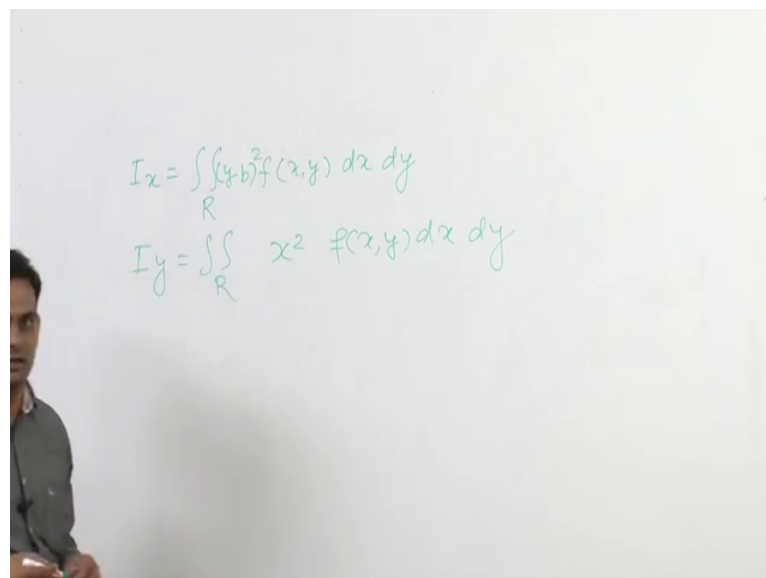 Ix = ∫∫(y-b)²f(x,y) dx dy
R
Iy = ∫∫ x² f(x,y) dx dy
R